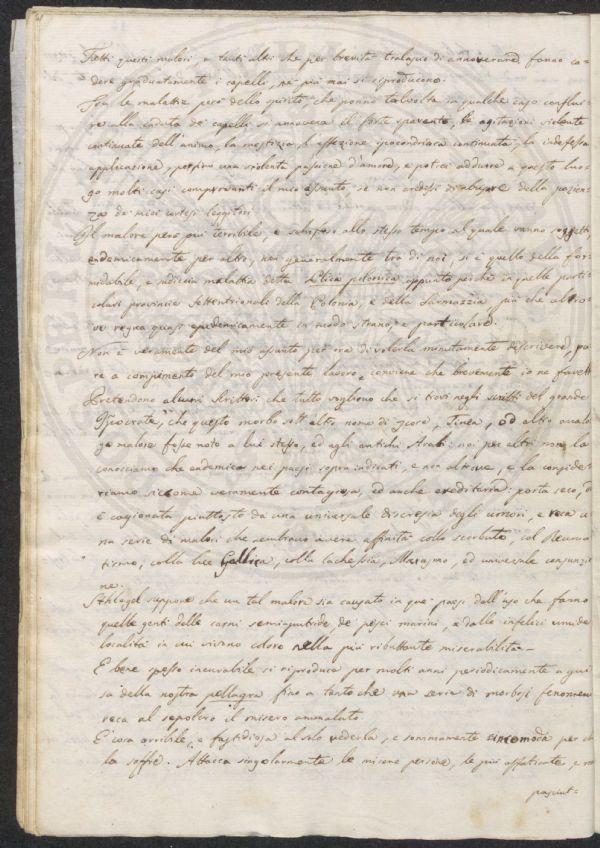 Tutti questi malori, e tanti altri che per brevità tralascio di annoverare, fanno ca-
dere gradatamente i capelli, nè più mai si riproducono.
Fra le malattie però dello spirito, che ponno talvolta in qualche caso conflui-
re alla caduta dei capelli si annovera il forte spavento, le agitazioni violente
continuate dell'animo, la mestizia, l'affezione ipocondriaca continuata, la indefessa
applicazione, perfino una violenta passione d'amore, e potrei addurre a questo luo-
go molti casi comprovanti il mio assunto, se non credessi di abusare della pazien-
za de' miei cortesi leggitori.
Il malore però più terribile, e schifoso allo stesso tempo al quale vanno soggetti,
endemicamente per altro, non generalmente tra di noi, si è quello della for-
midabile, e sudicia malattia detta Plica polonica appunto perchè in quelle parti-
colari provincie Settentrionali della Polonia, e della Sarmazzia più che altro-
ve regna quasi epidemicamente in modo strano, e particolare.
Non è veramente del mio assunto per ora di volerla minutamente descrivere, pu-
re a compimento del mio presente lavoro, conviene che brevemente io ne favelli
Pretendono alcuni Scrittori che tutto vogliono che si trovi negli scritti del grande
Ipocrate, che questo morbo sott'altro nome di Tinea, od altro analo-
go malore fosse noto a lui stesso, ed agli antichi Arabi: noi per altro non la
conosciamo che endemica nei paesi sopra indicati, e non altrove, e la conside-
riamo siccome veramente contagiosa, ed anche ereditaria: porta seco, od
è cagionata piuttosto da una universale discrasia degli umori, e reca u-
na serie di malori che sembrano avere affinità collo scorbuto, col Reuma-
tismo, colla lue Gallica, colla Cachessia, Marasmo, ed universale consunzio-
ne.
Schlegel suppone che un tal malore sia causato in que' paesi dall'uso che fanno
quelle genti delle carni semiputride de' pesci marini, e dalle infelici umide
località in cui vivono coloro nella più ributtante miserabilità.
E bene spesso incurabile si riproduce per molti anni periodicamente a gui-
sa della nostra pellagra fino a tanto che una serie di morbosi fenomeni
reca al sepolcro il misero ammalato.
E' cosa orribile, e fastidiosa al solo vederla, e sommamente incomoda per chi
la soffre. Attacca singolarmente le misere persone, le più affaticate, e mal
pasciut=